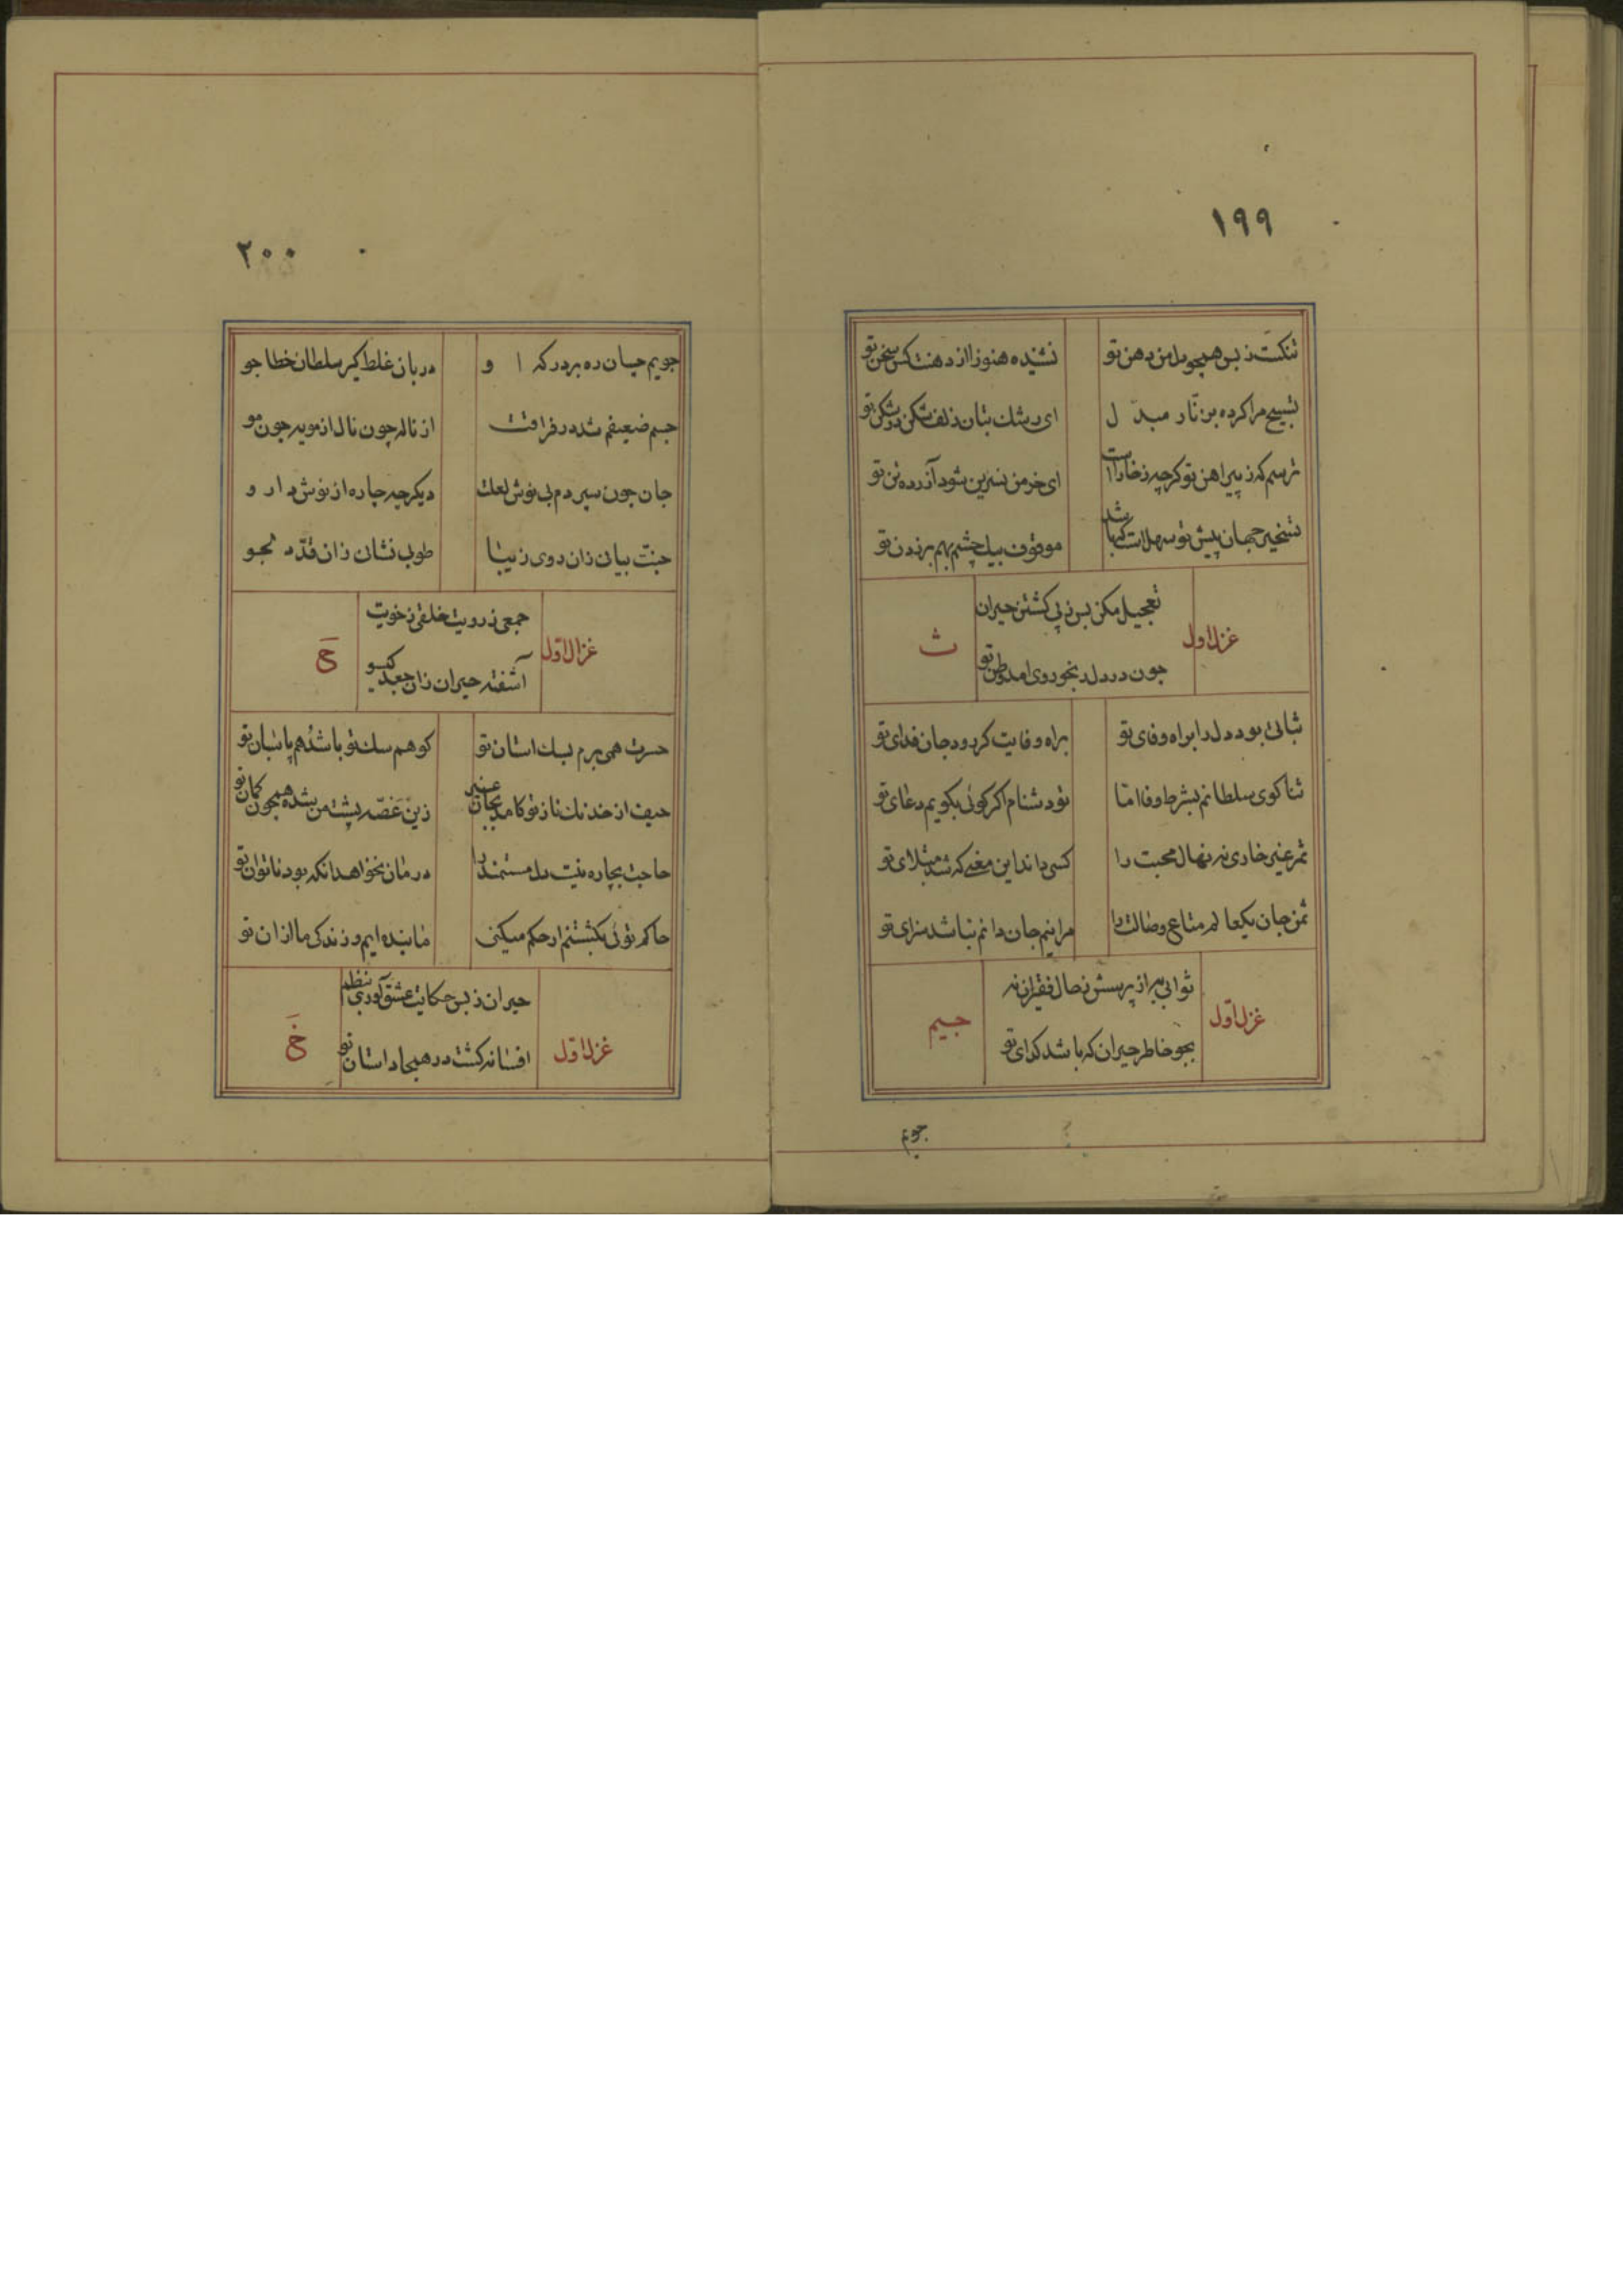 ۱۹۹
تنکست ز بس همچو دل من دهن تو
نشنیده هنوز از دهنت کس سخن تو
تسبیح مرا کرده بزنّار مبدّ ل
ای رشك بتان زلف شکن در شکن تو
ترسم که ز پیراهن تو کرچه ز خاراست
ای خرمن نسرین شود آزرده تن تو
تسخیر جهان پیش تو سهلست که باشد
موقوف بیك چشم بهم بر زدن تو
غزل اول
تعجیل مکن بس ز پی کشتن حیران
چون در دل رنجور وی امد وطن تو
ث
ثباتی بود دلرا براه وفای تو
براه وفایت کر رود جان فدای تو
ثنا کوی سلطانم بشرط وفا امّا
تو دشنام اکر کوئی بکویم دعای تو
ثمر غیر خاری نه نهال محبت را
کسی داند این معنی که شد مبتلای تو
ثمن جان یکعالم متاع وصالت را
مرا نیم جان دانم نباشد سزای تو
غزل اوّل
ثوابی بر از پرسش ز حال فقیرانه
بجو خاطر حیران که باشد کدای تو
جیم
جویم
۲۰۰
جویم جسان ره بر درکه ا و
دربان غلط کیر سلطان خطا جو
جسم ضعیفم شد در فراقت
از ناله چون نال از مویه چون مو
جان چون سپردم بی نوش لعلت
دیکر چه چاره از نوش دار و
جنّت بیانی زان روی زیبا
طوبی نشانی زان قدّ د لجو
غزال اوّل
جمعی ز رویت خلقی ز خویت
آشفته حیران زان جعد کیسو
ح
حسرت همی برم بسك استان تو
کو هم سك تو باشد و هم پاسبان تو
حیف از خدنك ناز تو کامد بجان غیر
زین غصّه پشت من شده همچون کمان تو
حاجت بچاره نیست دل مستمند را
درمان نخواهد انکه بود ناتوان تو
حاکم توئی بکشتنم ار حکم میکنی
ما بنده ایم و زندکی ما از ان تو
غزل اوّل
حیران ز بس حکایت عشق آوری بنظم
افسانه کشت در همه جا داستان تو
خ